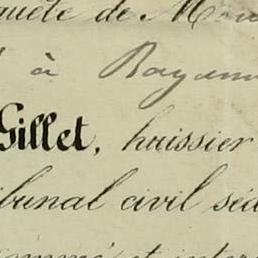 quête de M
à Bayonn
Gillet, huissier
ibunal civil séa